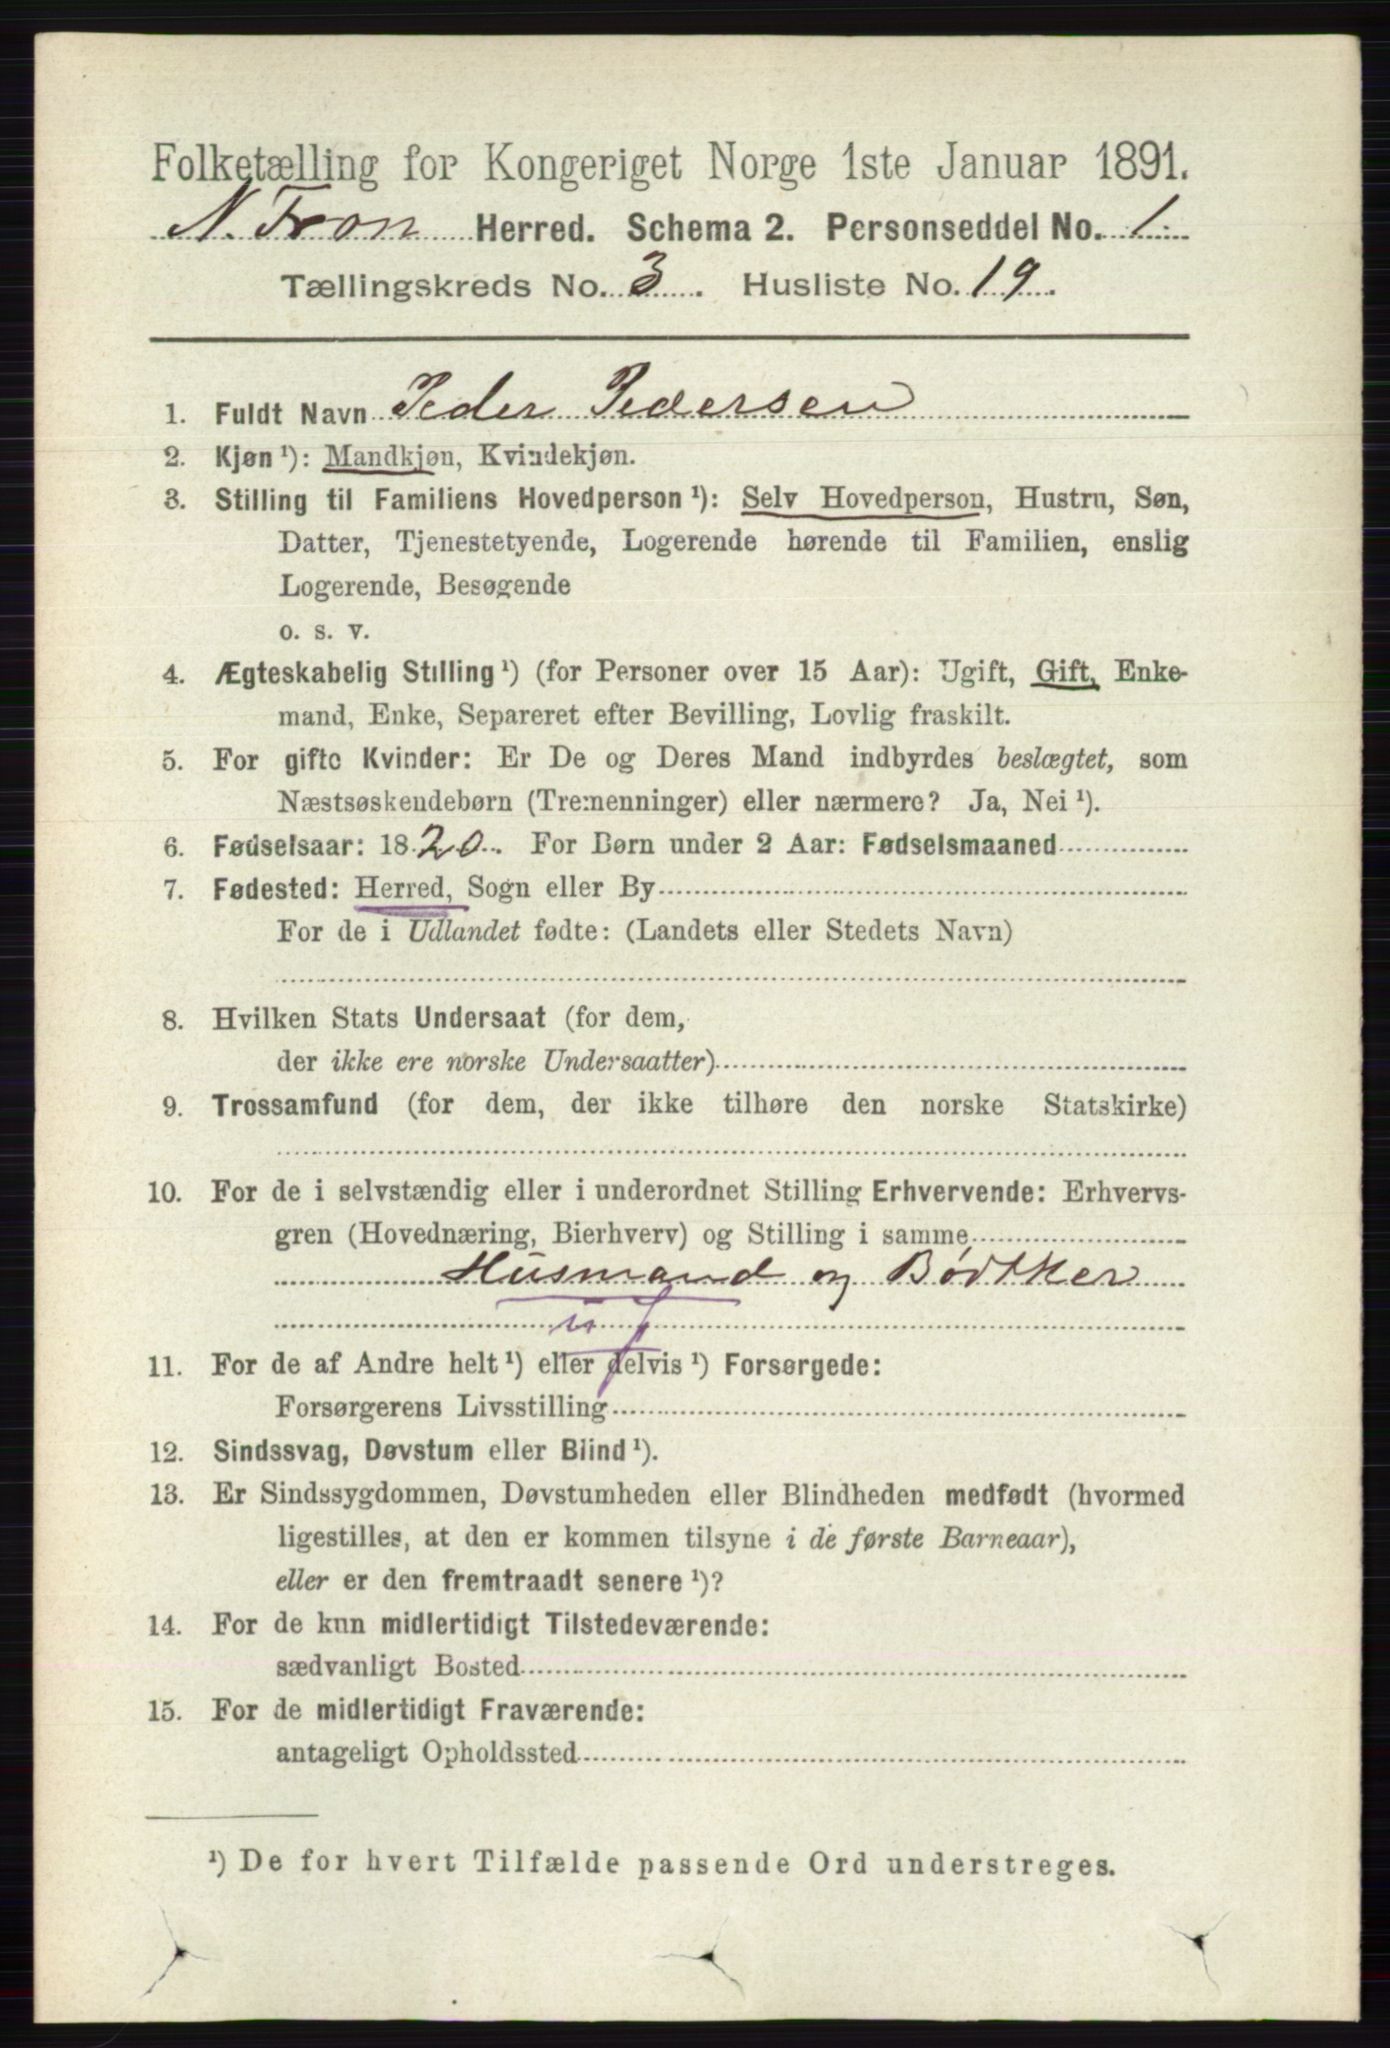 Folketælling for Kongeriget Norge 1ste Januar 1891.
N. Fron Herred. Schema 2. Personseddel No. 1.
Tællingskreds No. 3. Husliste No. 19.
1. Fuldt Navn Peder Pedersen
2. Kjøn ¹): Mandkjøn, Kvindekjøn.
3. Stilling til Familiens Hovedperson ¹): Selv Hovedperson, Hustru, Søn,
Datter, Tjenestetyende, Logerende hørende til Familien, enslig
Logerende, Besøgende
o. s. v.
4. Ægteskabelig Stilling ¹) (for Personer over 15 Aar): Ugift, Gift, Enke-
mand, Enke, Separeret efter Bevilling, Lovlig fraskilt.
5. For gifte Kvinder: Er De og Deres Mand indbyrdes beslægtet, som
Næstsøskendebørn (Tremenninger) eller nærmere? Ja, Nei ¹).
6. Fødselsaar: 1820. For Børn under 2 Aar: Fødselsmaaned
7. Fødested: Herred, Sogn eller By
For de i Udlandet fødte: (Landets eller Stedets Navn)
8. Hvilken Stats Undersaat (for dem,
der ikke ere norske Undersaatter)
9. Trossamfund (for dem, der ikke tilhøre den norske Statskirke)
10. For de i selvstændig eller i underordnet Stilling Erhvervende: Erhvervs-
gren (Hovednæring, Bierhverv) og Stilling i samme
Husmand og Bødtker
11. For de af Andre helt ¹) eller delvis ¹) Forsørgede:
Forsørgerens Livsstilling
12. Sindssvag, Døvstum eller Blind ¹).
13. Er Sindssygdommen, Døvstumheden eller Blindheden medfødt (hvormed
ligestilles, at den er kommen tilsyne i de første Barneaar),
eller er den fremtraadt senere ¹)?
14. For de kun midlertidigt Tilstedeværende:
sædvanligt Bosted
15. For de midlertidigt Fraværende:
antageligt Opholdssted
¹) De for hvert Tilfælde passende Ord understreges.